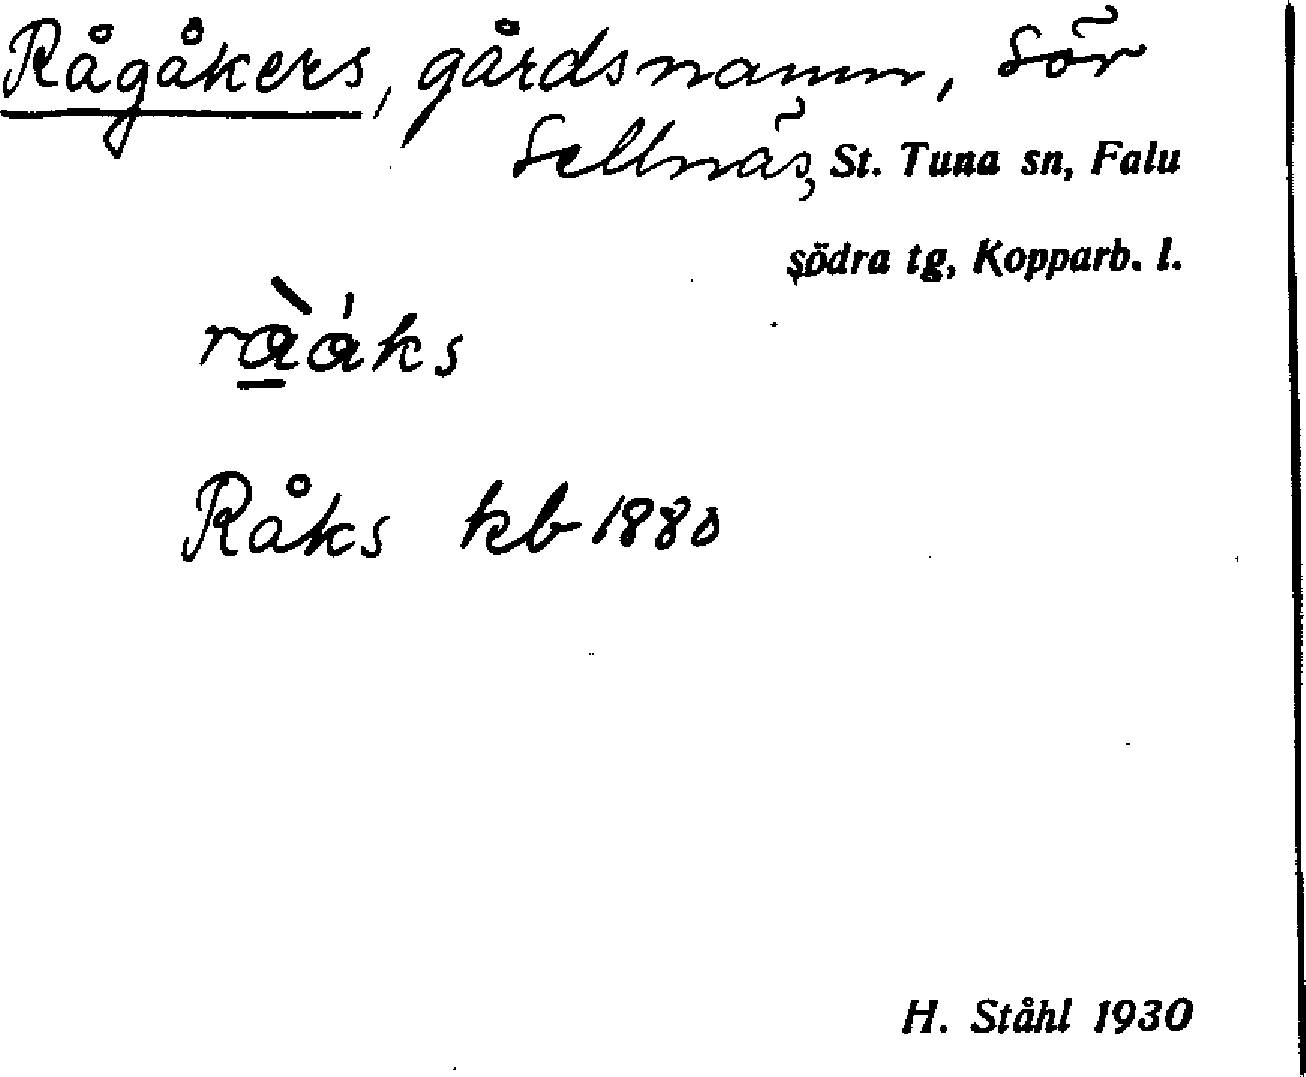 Rågåkers, gårdsnamn, Sör
Sellnäs, St. Tuna sn, Falu
södra tg, Kopparb. l.
rὰ̲άks
Råks kb 1880
H. Ståhl 1930